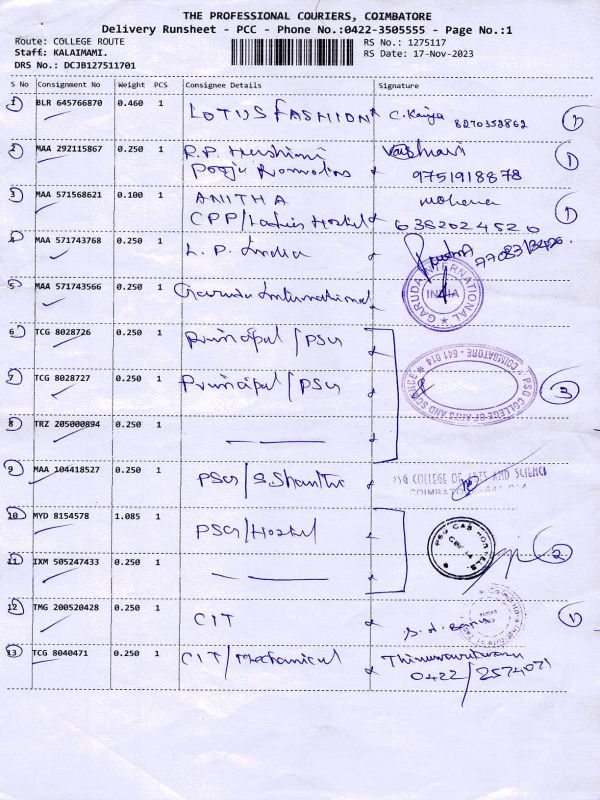 THE PROFESSIONAL COURIERS, COIMBATORE
Delivery Runsheet - PCC - Phone No.:0422-3505555 - Page No.:1
Route: COLLEGE ROUTE RS No.: 1275117
Staff: KALAIMAMI. RS Date: 17-Nov-2023
DRS No.: DCJB127511701
S No Consignment No Weight PCS Consignee Details Signature
1 BLR 645766870 0.460 1 LOTUS FASHION 8270352862 1
2 MAA 292115867 0.250 1 R.P. Vaishnavi 1
Pooja 9751918878
3 MAA 571568621 0.100 1 ANITHA Mohana 1
CPP/Ladies Hostel 6382024520
4 MAA 571743768 0.250 1 L.P. India
5 MAA 571743566 0.250 1 Garuda International GARUDA INTERNATIONAL INDIA
6 TCG 8028726 0.250 1 Principal/PSG
7 TCG 8028727 0.250 1 Principal/PSG PSG COLLEGE OF ARTS AND SCIENCE COIMBATORE - 641 014 3
8 TRZ 205000894 0.250 1
9 MAA 104418527 0.250 1 PSG/S.Shanthi PSG COLLEGE OF ARTS AND SCIENCE
COIMBATORE - 641 014
10 MYD 8154578 1.085 1 PSG/Hostel PSG CAS HOSTELS 2
11 IXM 505247433 0.250 1
12 TMG 200520428 0.250 1 CIT 1
13 TCG 8040471 0.250 1 CIT/Mechanical
0422/2574071